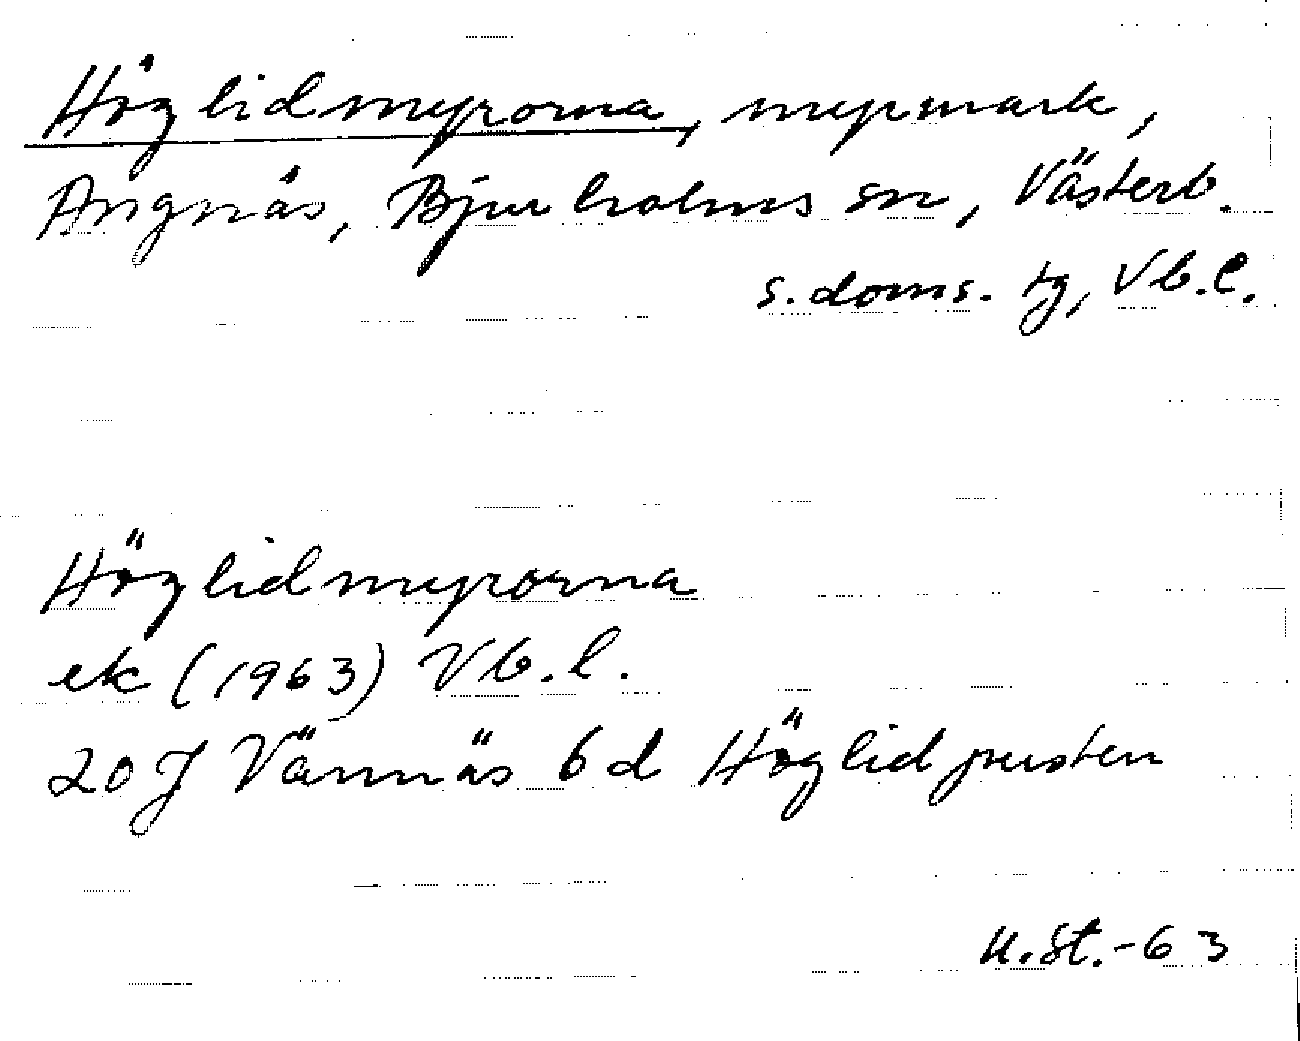 Höglidmyrorna, myrmark,
Angnäs, Bjurholms sn, Västerb.
s. doms. tg, Vb.l.
Höglidmyrorna
ek (1963) Vb.l.
20 J Vännäs 6 d Höglidpusten
U.St.-63